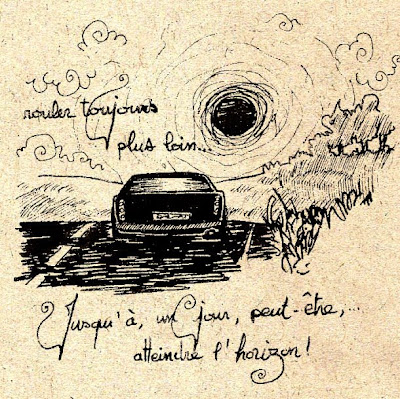 rouler toujours
plus loin...
Jusqu'à, un jour, peut-être,...
atteindre l'horizon!